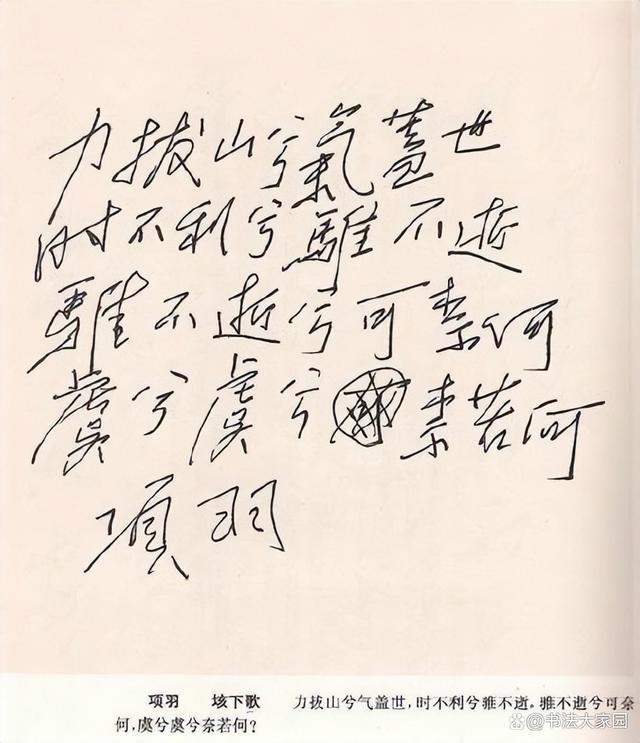 力拔山兮氣蓋世
时不利兮騅不逝
騅不逝兮可柰何
虞兮虞兮柰若何
項羽
项羽 垓下歌 力拔山兮气盖世，时不利兮骓不逝。骓不逝兮可奈
何，虞兮虞兮奈若何？
@书法大家园